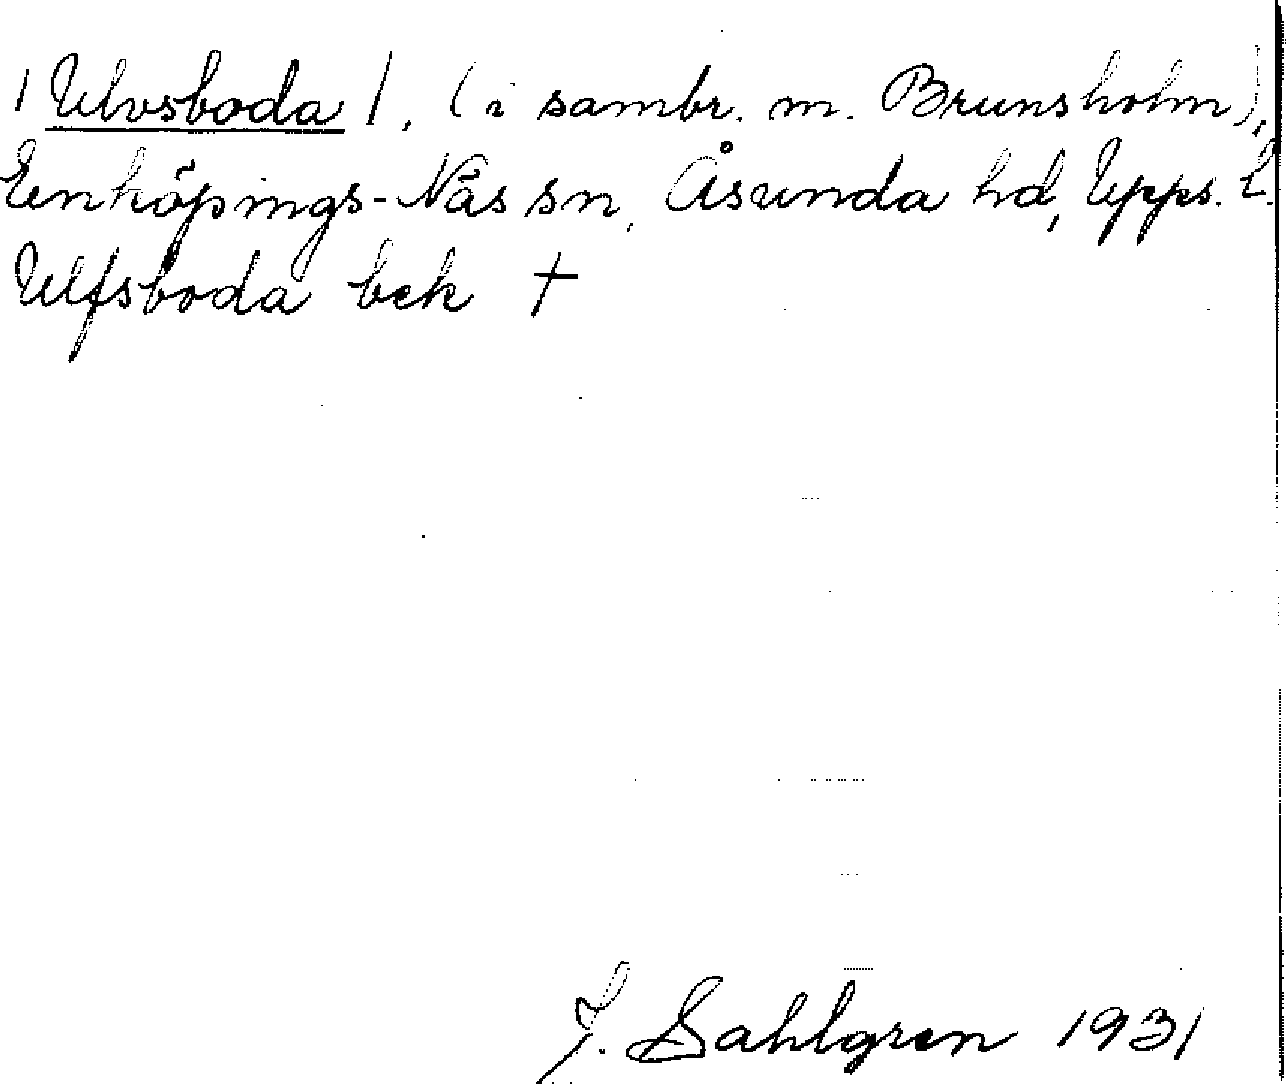 / Ulvsboda /, (i sambr. m. Brunsholm),
Enköpings-Näs sn, Åsunda hd, Upps. l.
Ulfsboda bek †
J. Sahlgren 1931